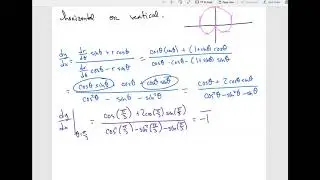 horizontal or vertical.
dy/dx = (dr/dθ sinθ + r cosθ) / (dr/dθ cosθ - r sinθ) = (cosθ(sinθ) + (1+sinθ) cosθ) / (cosθ·cosθ - (1+sinθ) sinθ)
= (cosθ sinθ + cosθ + cosθ sinθ) / (cos²θ - sinθ - sin²θ) = (cosθ + 2 cosθ sinθ) / (cos²θ - sin²θ - sinθ)
dy/dx | θ=π/3 = (cos(π/3) + 2cos(π/3) sin(π/3)) / (cos²(π/3) - sin²(π/3) - sin(π/3)) = -1